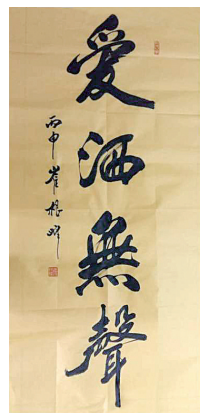 爱洒無聲
丙申崔根